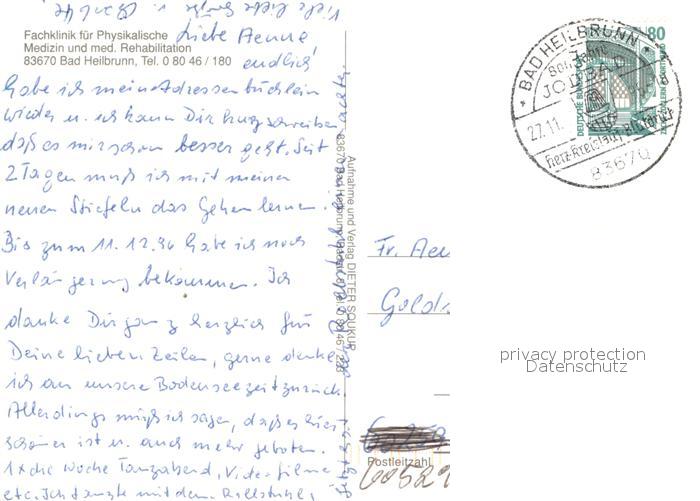 Fachklinik für Physikalische
Medizin und med. Rehabilitation
83670 Bad Heilbrunn, Tel. 0 80 46 / 180
Liebe Aenne
endlich
habe ich mein Adressenbüchlein
wieder u. ich kann Dir kurz schreiben
daß es mir schon besser geht. Seit
2 Tagen muß ich mit meinen
neuen Stiefeln das Gehen lernen.
Bis zum 11.12.96 habe ich noch
Verlängerung bekommen. Ich
danke Dir ganz herzlich für
Deine lieben Zeilen, gerne denke
ich an unsere Bodenseezeit zurück.
Allerdings muß ich sagen, daß es hier
schöner ist u. auch mehr geboten.
1x die Woche Tanzabend, Videofilme
etc. Ich tanzte mit dem Rollstuhl,
Aufnahme und Verlag DIETER SOUKUP
83670 Bad Heilbrunn
BAD HEILBRUNN
800 Jahre
JODBAD
27.11.
Herz-Kreislauf, Rheuma
83670
80
DEUTSCHE BUNDESPOST
Fr. Aen
Golds
Postleitzahl
60529
privacy protection
Datenschutz